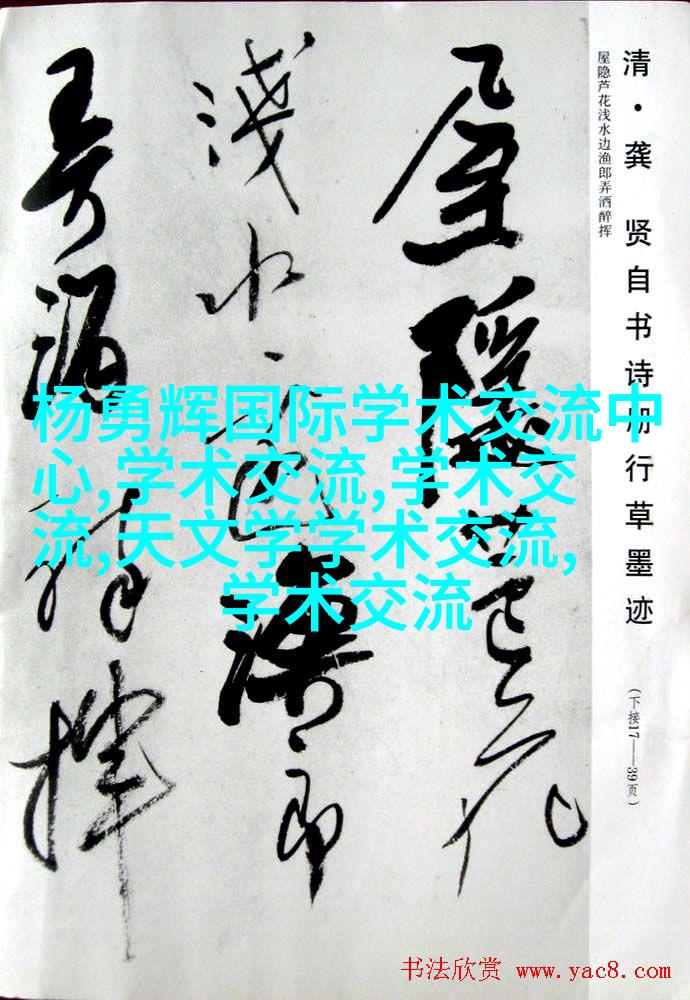 清·龚 贤自书诗册行草墨迹
(下接17——39页)
屋隐芦花浅水边渔郎弄洒醉挥
屋隱芦花
淺水边漁郎
弄酒醉揮
杨勇辉国际学术交流中
心,学术交流,学术交
流,天文学学术交流,
学术交流
书法欣赏 www.yac8.com